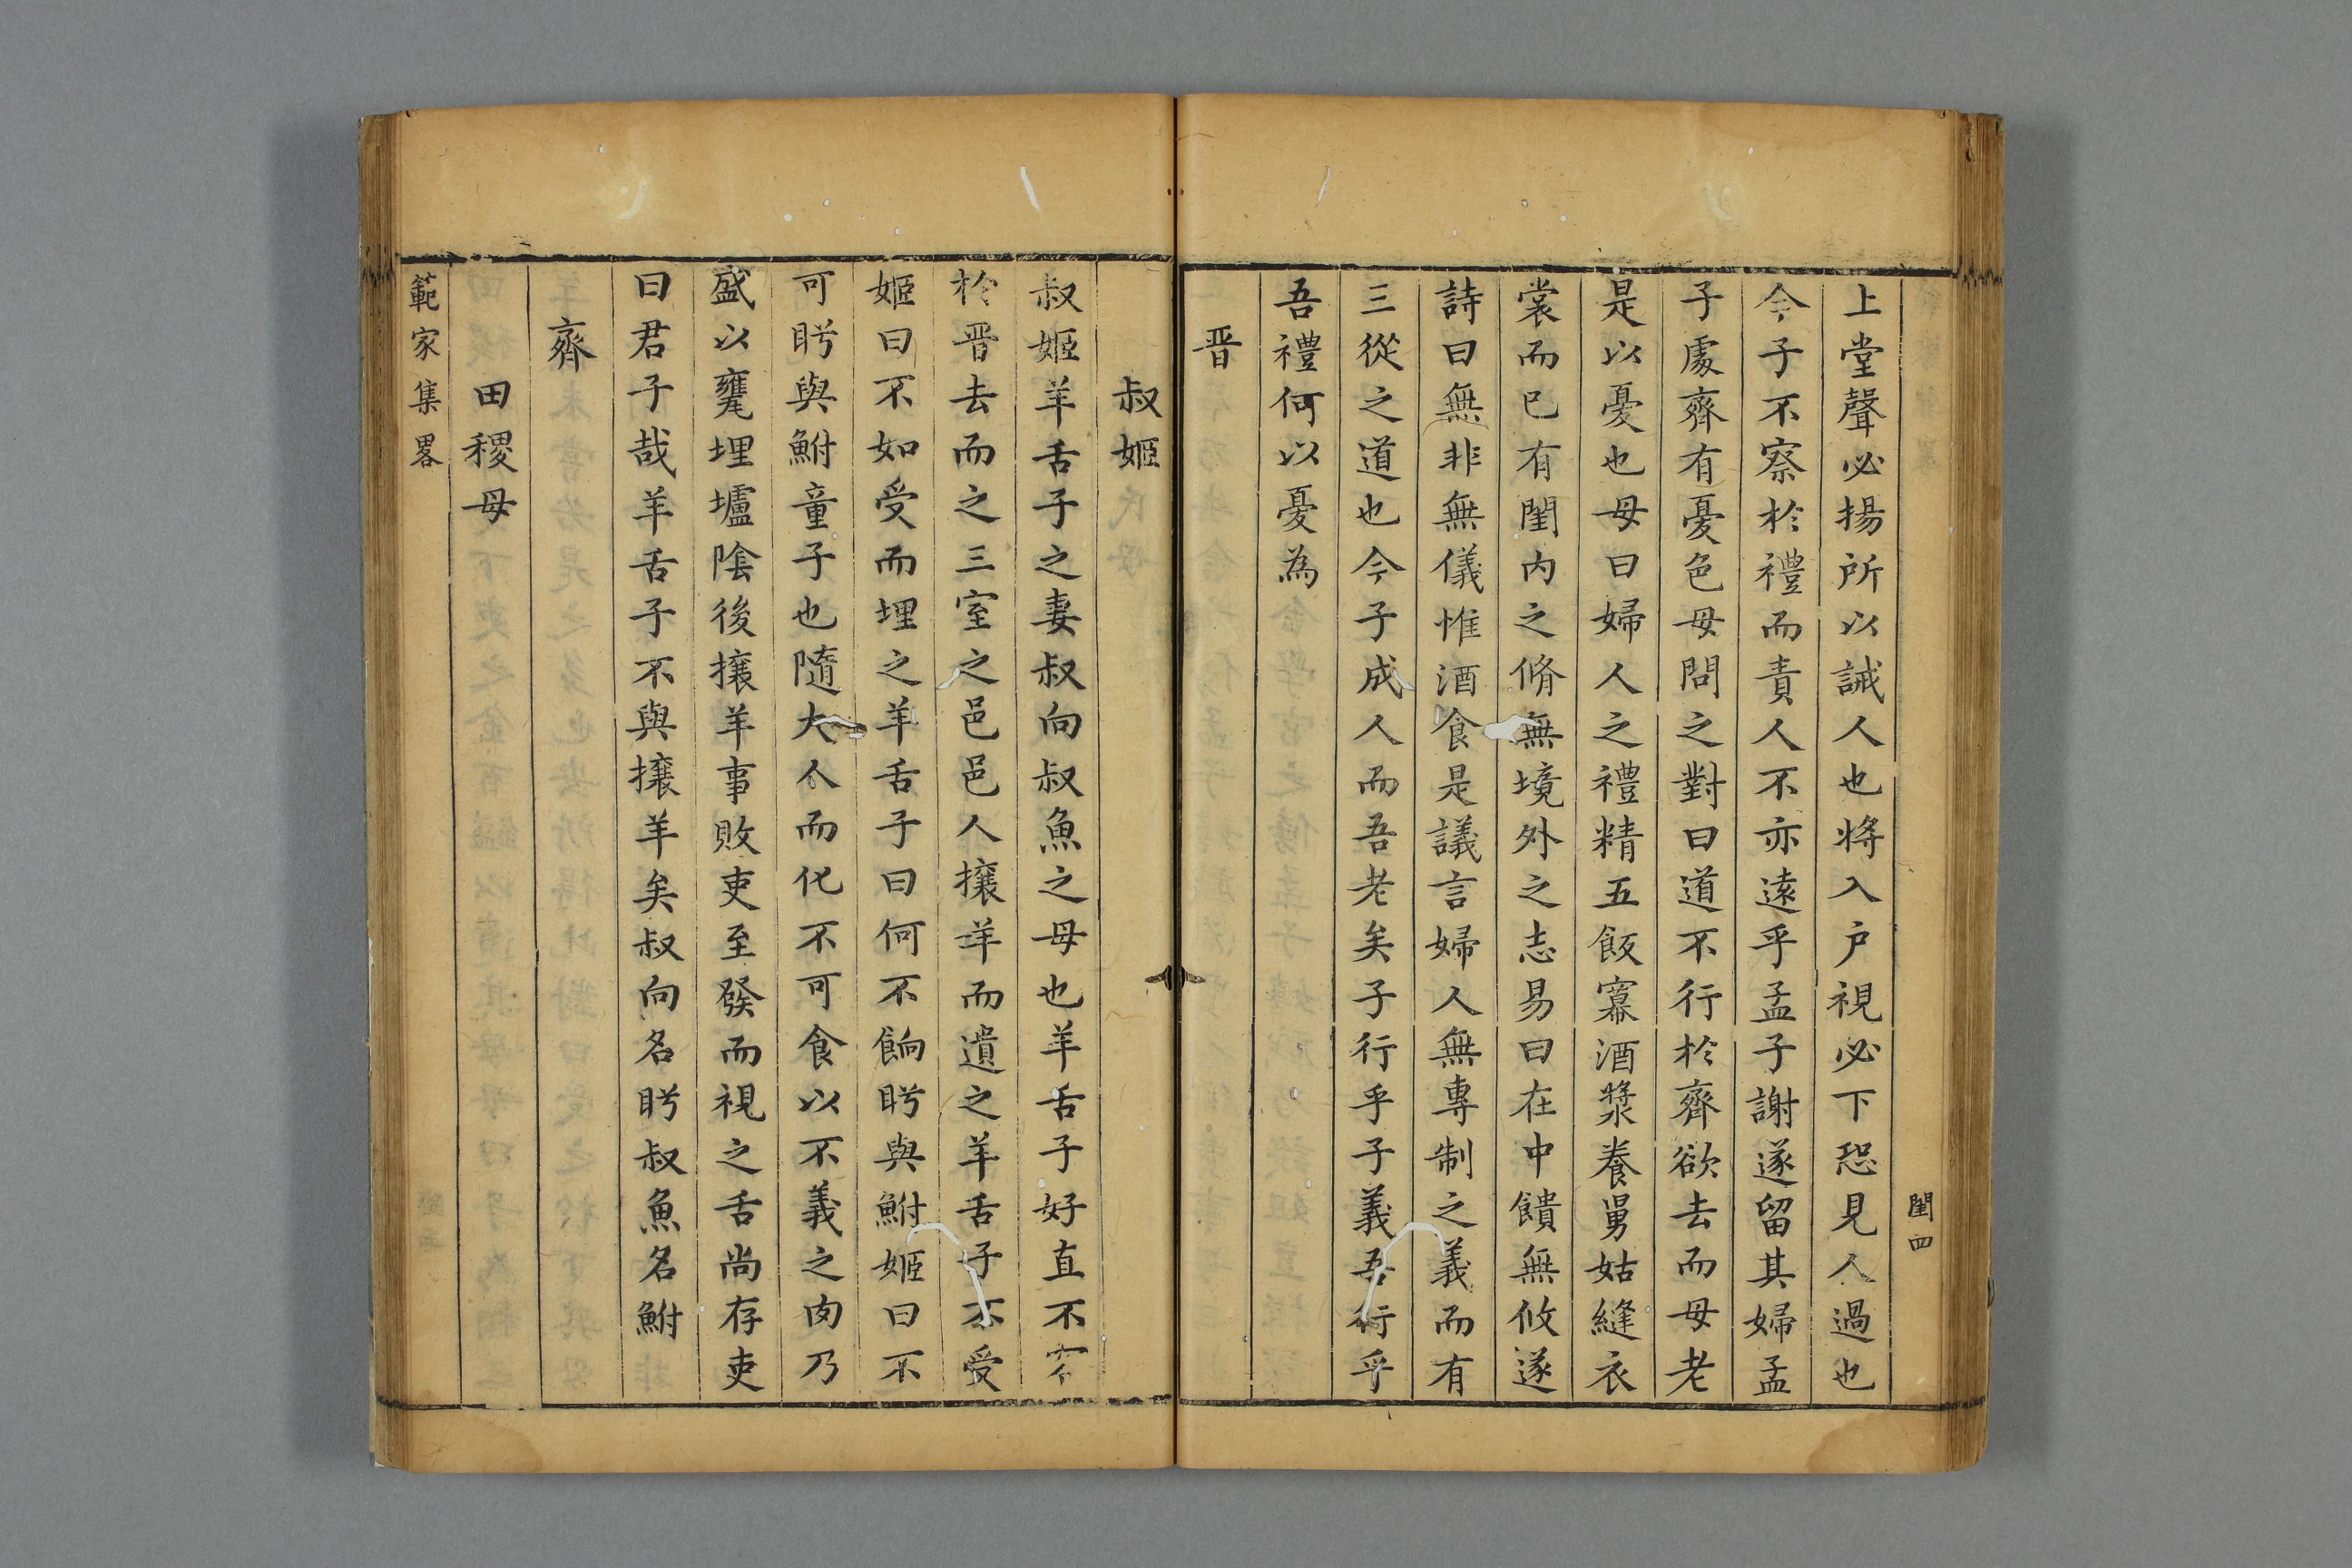 閨四
上堂聲必揚所以誡人也將入戶視必下恐見人過也
今子不察於禮而責人不亦遠乎孟子謝遂留其婦孟
子處齊有憂色母問之對曰道不行於齊欲去而母老
是以憂也母曰婦人之禮精五飯冪酒漿養舅姑縫衣
裳而已有閨內之脩無境外之志易曰在中饋無攸遂
詩曰無非無儀惟酒食是議言婦人無專制之義而有
三從之道也今子成人而吾老矣子行乎子義吾行乎
吾禮何以憂為
晋
叔姬
叔姬羊舌子之妻叔向叔魚之母也羊舌子好直不容
於晋去而之三室之邑邑人攘羊而遺之羊舌子不受
姬曰不如受而埋之羊舌子曰何不餉盻與鮒姬曰不
可盻與鮒童子也隨大人而化不可食以不義之肉乃
盛以甕埋壚陰後攘羊事敗吏至發而視之舌尚存吏
曰君子哉羊舌子不與攘羊矣叔向名盻叔魚名鮒
齊
田稷母
範家集畧